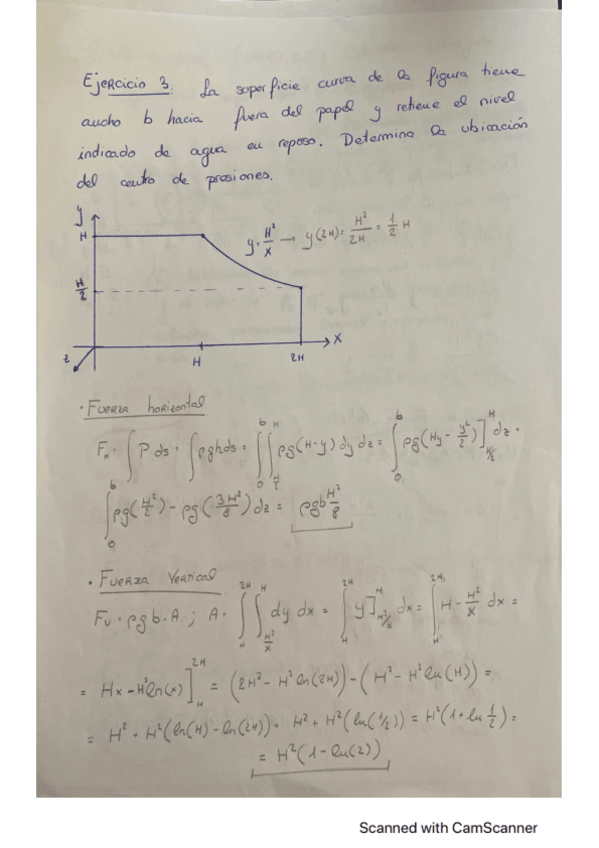 Ejercicio 3. La superficie curva de la figura tiene
ancho b hacia fuera del papel y retiene el nivel
indicado de agua en reposo. Determina la ubicación
del centro de presiones.
y
H
y = H²/x → y(2H) = H²/2H = 1/2 H
H/2
z
H
2H
x
· Fuerza horizontal
F_H = ∫ P ds = ∫ ρghds = ∫₀^b ∫_{H/2}^H ρg(H-y) dy dz = ∫₀^b ρg(Hy - y²/2)]_{H/2}^H dz =
∫₀^b ρg(H²/2) - ρg(3H²/8) dz = ρgb H²/8
· Fuerza Vertical
Fv = ρgb·A ; A = ∫_H^{2H} ∫_{H²/x}^H dy dx = ∫_H^{2H} y]_{H²/x}^H dx = ∫_H^{2H} H - H²/x dx =
= Hx - H²ln(x)]_H^{2H} = (2H² - H² ln(2H)) - (H² - H² ln(H)) =
= H² + H²(ln(H) - ln(2H)) = H² + H²(ln(1/2)) = H²(1 + ln 1/2) =
= H²(1 - ln(2))
Scanned with CamScanner